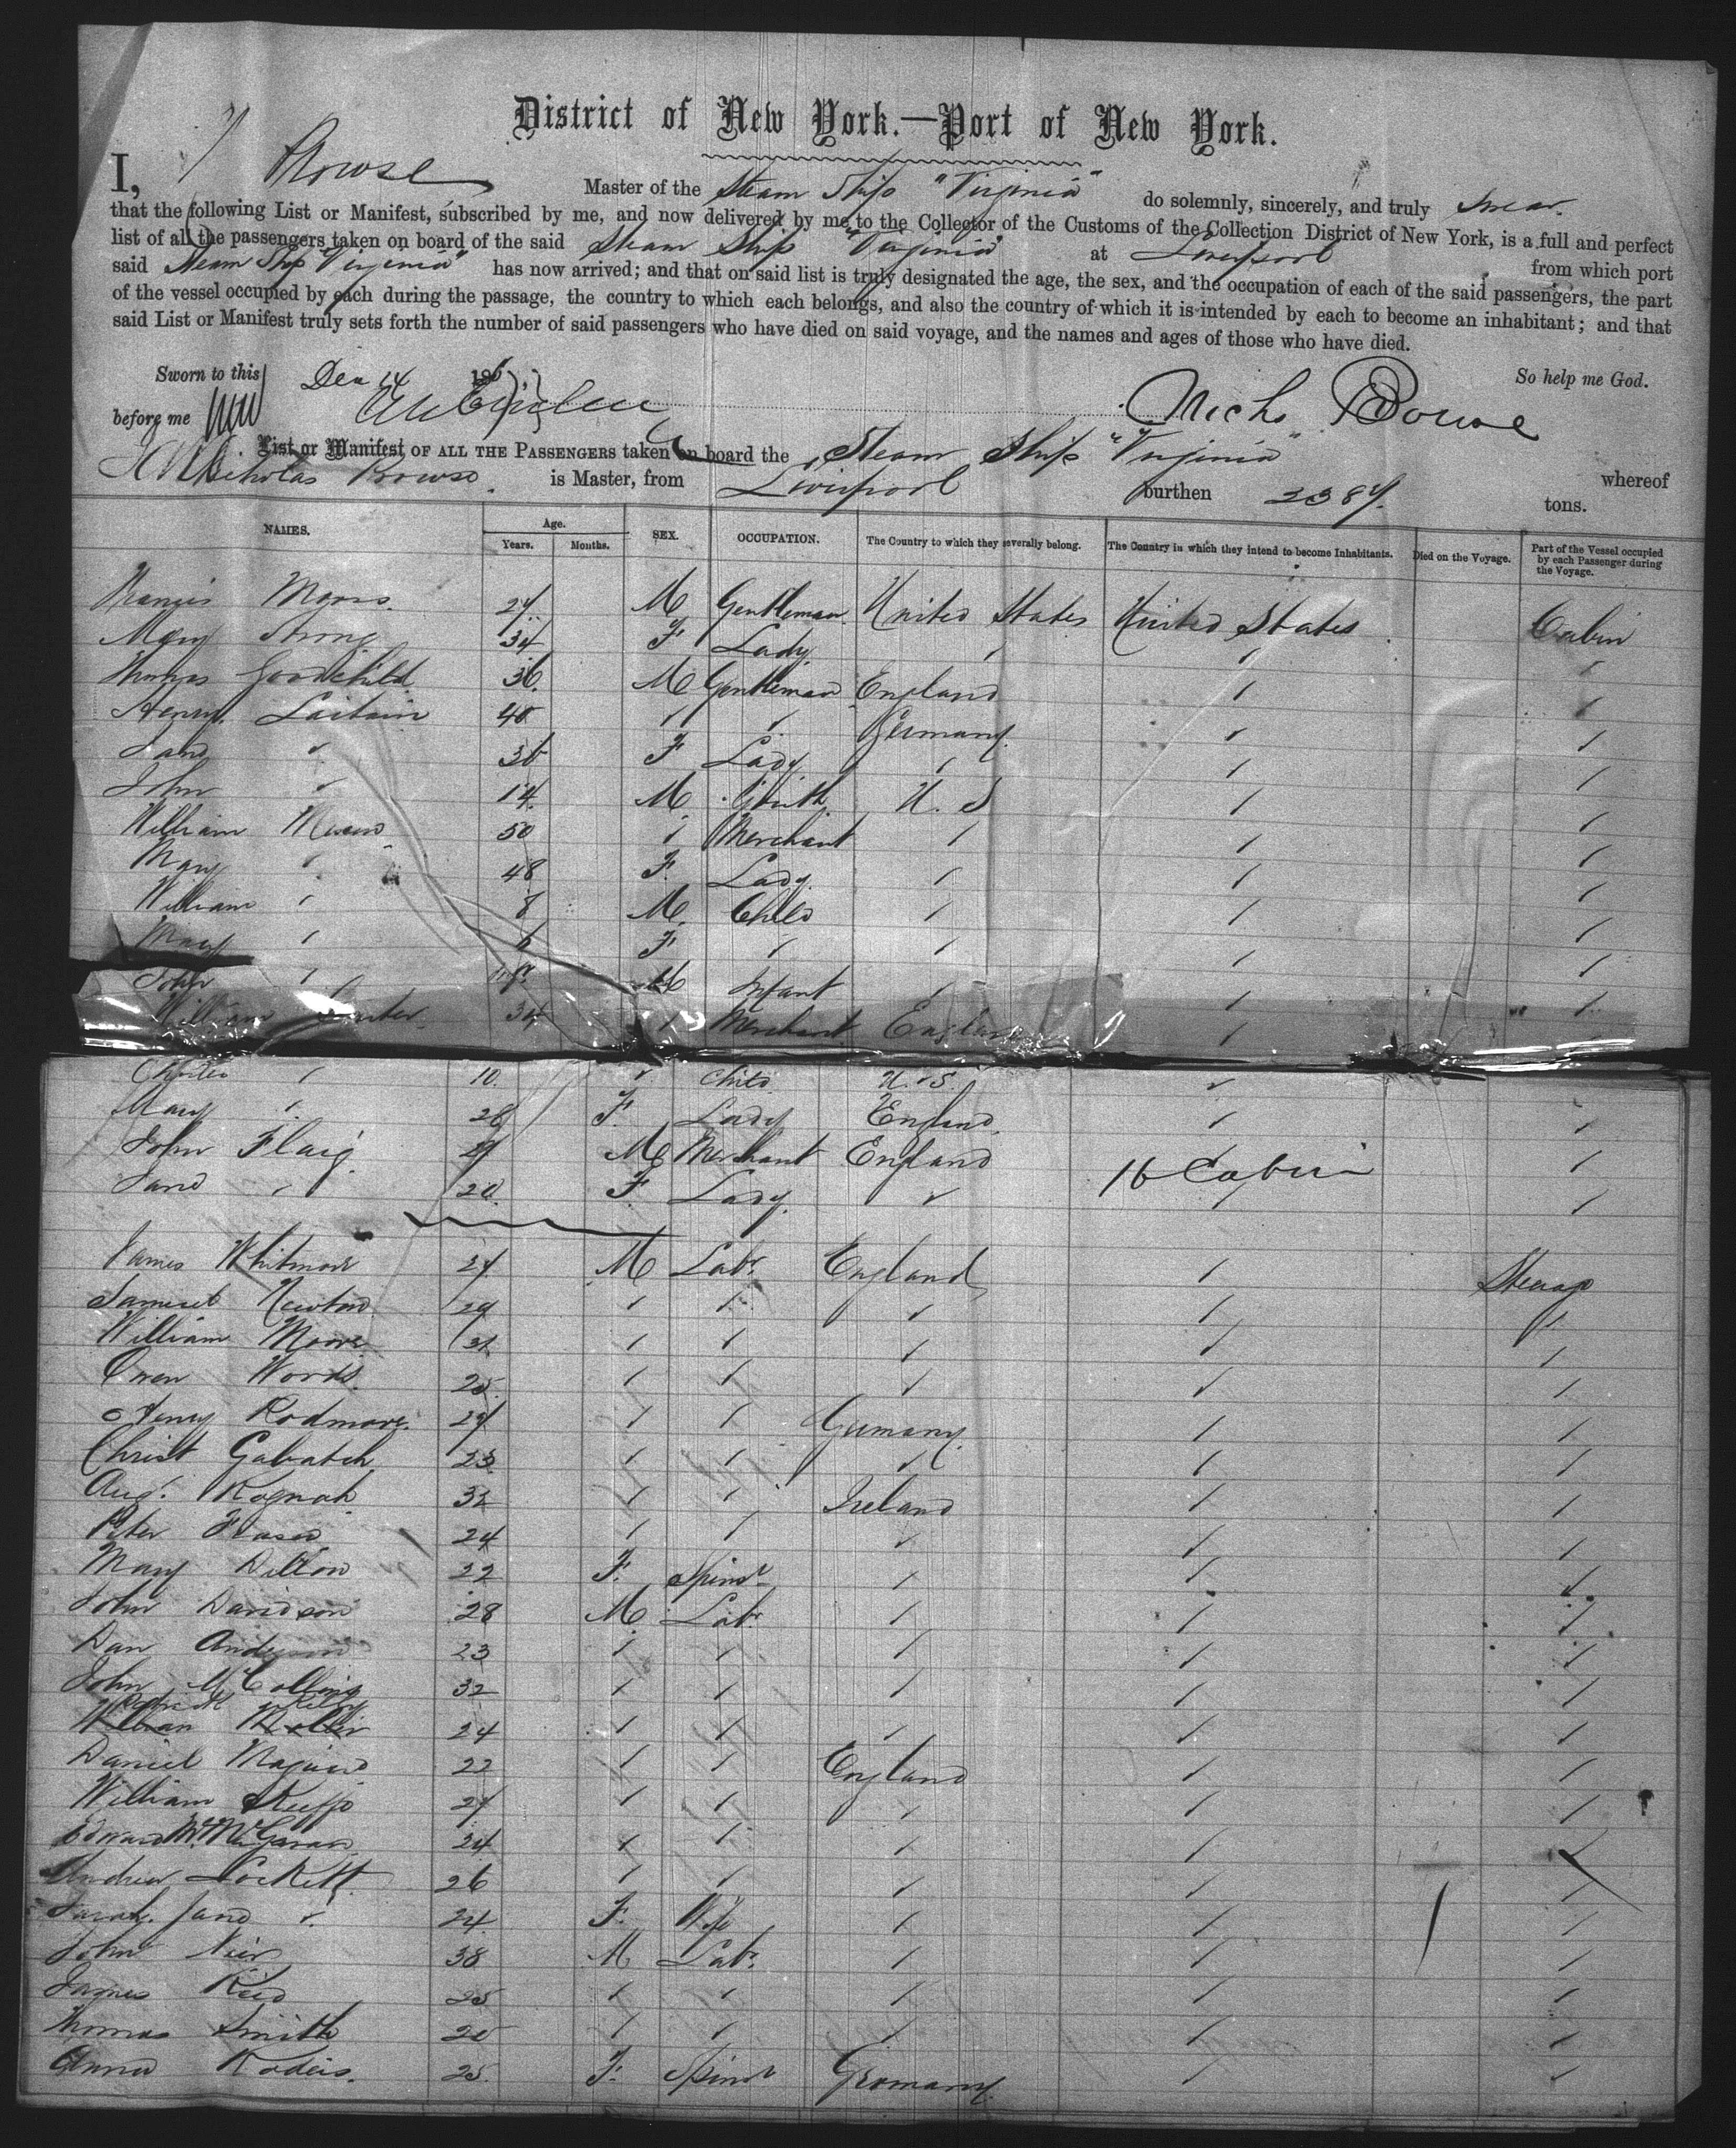 District of New York.—Port of New York.
I, Prowse Master of the Steam Ship "Virginia" do solemnly, sincerely, and truly swear
that the following List or Manifest, subscribed by me, and now delivered by me to the Collector of the Customs of the Collection District of New York, is a full and perfect
list of all the passengers taken on board of the said Steam Ship "Virginia" at Liverpool from which port
said Steam Ship "Virginia" has now arrived; and that on said list is truly designated the age, the sex, and the occupation of each of the said passengers, the part
of the vessel occupied by each during the passage, the country to which each belongs, and also the country of which it is intended by each to become an inhabitant; and that
said List or Manifest truly sets forth the number of said passengers who have died on said voyage, and the names and ages of those who have died.
Sworn to this Dec 14 186 So help me God.
before me Nichs Prowse
List or Manifest OF ALL THE PASSENGERS taken on board the Steam Ship "Virginia" whereof
Nicholas Prowse is Master, from Liverpool burthen 2387 tons.
NAMES. Age. Years. Months. SEX. OCCUPATION. The Country to which they severally belong. The Country in which they intend to become Inhabitants. Died on the Voyage. Part of the Vessel occupied by each Passenger during the Voyage.
Francis 27 M Gentleman United States United States Cabin
Mary Strong 34 F Lady
Thomas Goodchild 36 M Gentleman England
Henry 40 Germany
Jane 36 F Lady
John 14 M Youth U. S
William 50 Merchant
Mary 48 F Lady
William 8 M Child
Mary 6 F
John M Infant
William 34 Merchant England
Charles 10 Child U.S.
Mary 28 F Lady England
John Flaig M Merchant England 16 Cabin
Jane 20 F Lady
James Whitmore 27 M Labr England Steerage
Samuel Newton 29
William Moore 31
Owen Woods 25
Henry Rodmore 27 Germany
Christ Gabatch 23
Augt Rognah 32 Ireland
Peter Fraser 24
Mary Dillon 22 F Spinr
John Davidson 28 M Labr
Dan Anderson 23
John McCollins 32
Patrick Kelly
William 24
Daniel Maguire 22 England
William Keeffe 27
Edward 24
Andrew Lockett 26
Sarah Jane 24 F Wife
John Neir 38 M Labr
James Reid 25
Thomas Smith 20
Anna Roders 25 F Spinr Germany